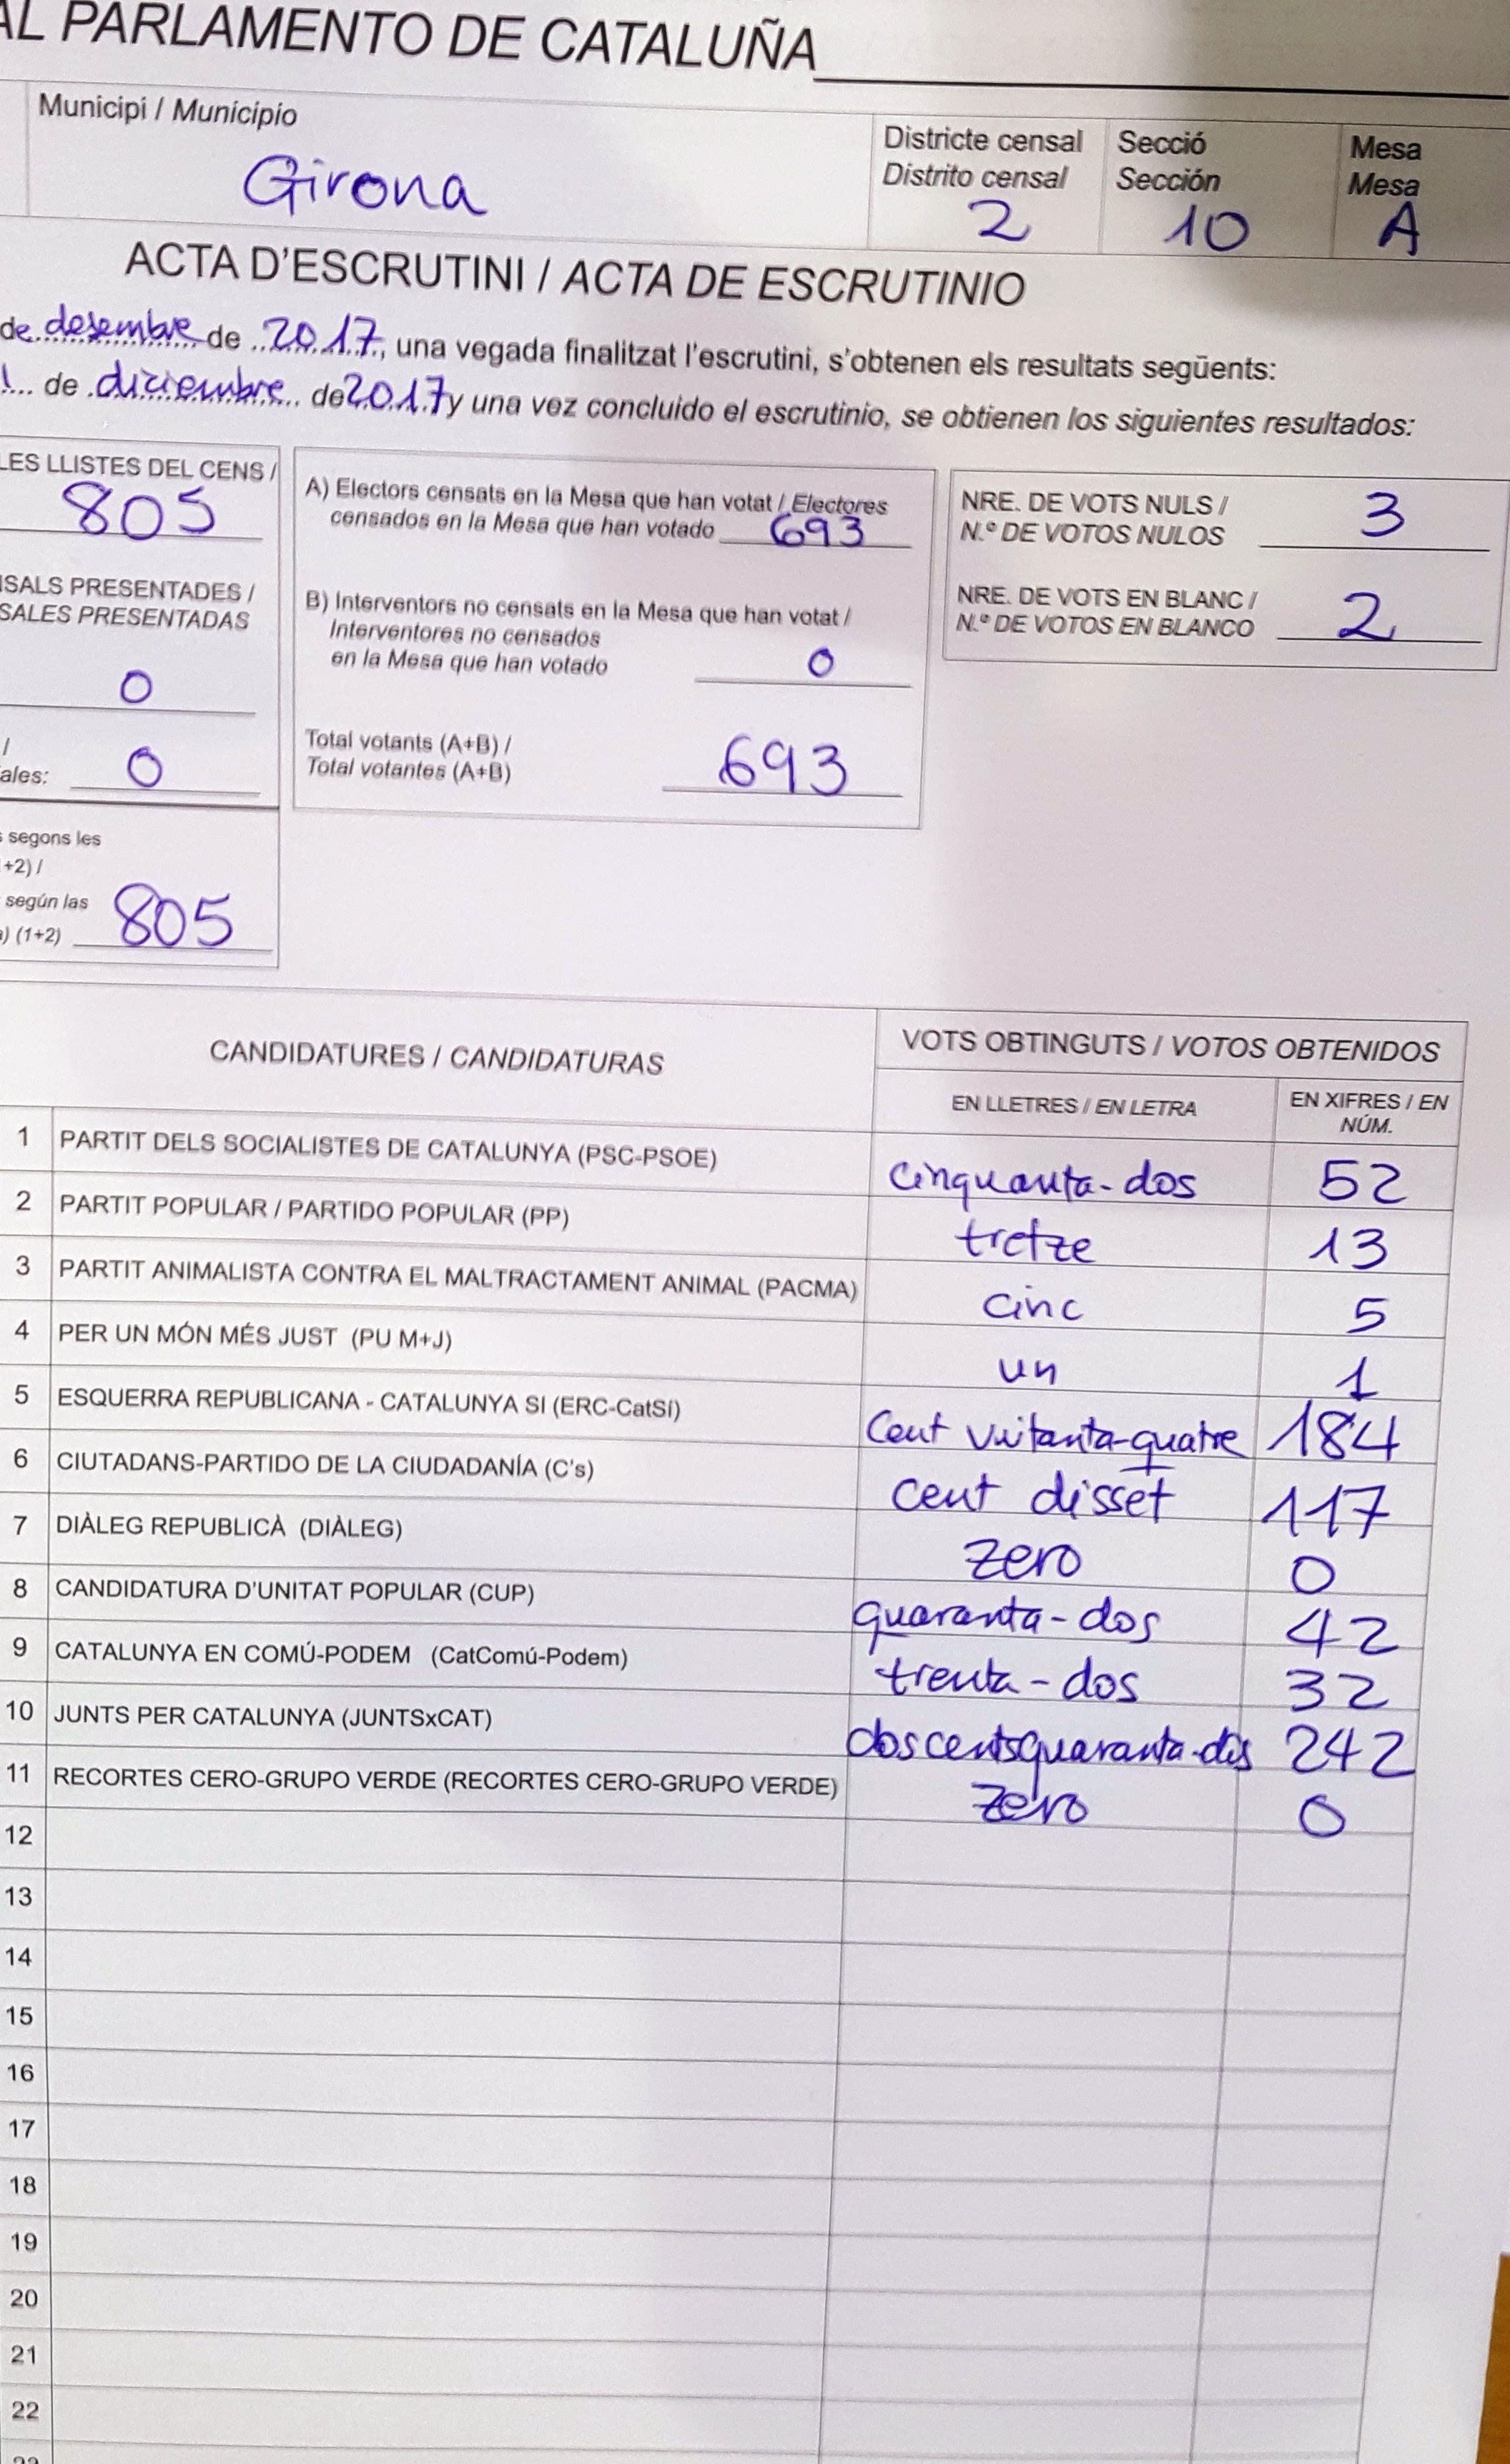 AL PARLAMENTO DE CATALUÑA
Municipi / Municipio
Girona
Districte censal
Distrito censal
2
Secció
Sección
10
Mesa
Mesa
A
ACTA D'ESCRUTINI / ACTA DE ESCRUTINIO
de desembre de 2017, una vegada finalitzat l'escrutini, s'obtenen els resultats següents:
de diciembre de 2017 y una vez concluido el escrutinio, se obtienen los siguientes resultados:
LES LLISTES DEL CENS /
805
SALS PRESENTADES /
SALES PRESENTADAS
0
/
ales: 0
segons les
+2) /
según las
) (1+2) 805
A) Electors censats en la Mesa que han votat / Electores
censados en la Mesa que han votado 693
B) Interventors no censats en la Mesa que han votat /
Interventores no censados
en la Mesa que han votado 0
Total votants (A+B) /
Total votantes (A+B) 693
NRE. DE VOTS NULS /
N.º DE VOTOS NULOS 3
NRE. DE VOTS EN BLANC /
N.º DE VOTOS EN BLANCO 2
CANDIDATURES / CANDIDATURAS
VOTS OBTINGUTS / VOTOS OBTENIDOS
EN LLETRES / EN LETRA
EN XIFRES / EN
NÚM.
1 PARTIT DELS SOCIALISTES DE CATALUNYA (PSC-PSOE) cinquanta-dos 52
2 PARTIT POPULAR / PARTIDO POPULAR (PP) tretze 13
3 PARTIT ANIMALISTA CONTRA EL MALTRACTAMENT ANIMAL (PACMA) cinc 5
4 PER UN MÓN MÉS JUST (PU M+J) un 1
5 ESQUERRA REPUBLICANA - CATALUNYA SI (ERC-CatSí) Cent vuitanta-quatre 184
6 CIUTADANS-PARTIDO DE LA CIUDADANÍA (C's) cent disset 117
7 DIÀLEG REPUBLICÀ (DIÀLEG) zero 0
8 CANDIDATURA D'UNITAT POPULAR (CUP) quaranta-dos 42
9 CATALUNYA EN COMÚ-PODEM (CatComú-Podem) trenta-dos 32
10 JUNTS PER CATALUNYA (JUNTSxCAT) doscentsquaranta-dos 242
11 RECORTES CERO-GRUPO VERDE (RECORTES CERO-GRUPO VERDE) zero 0
12
13
14
15
16
17
18
19
20
21
22